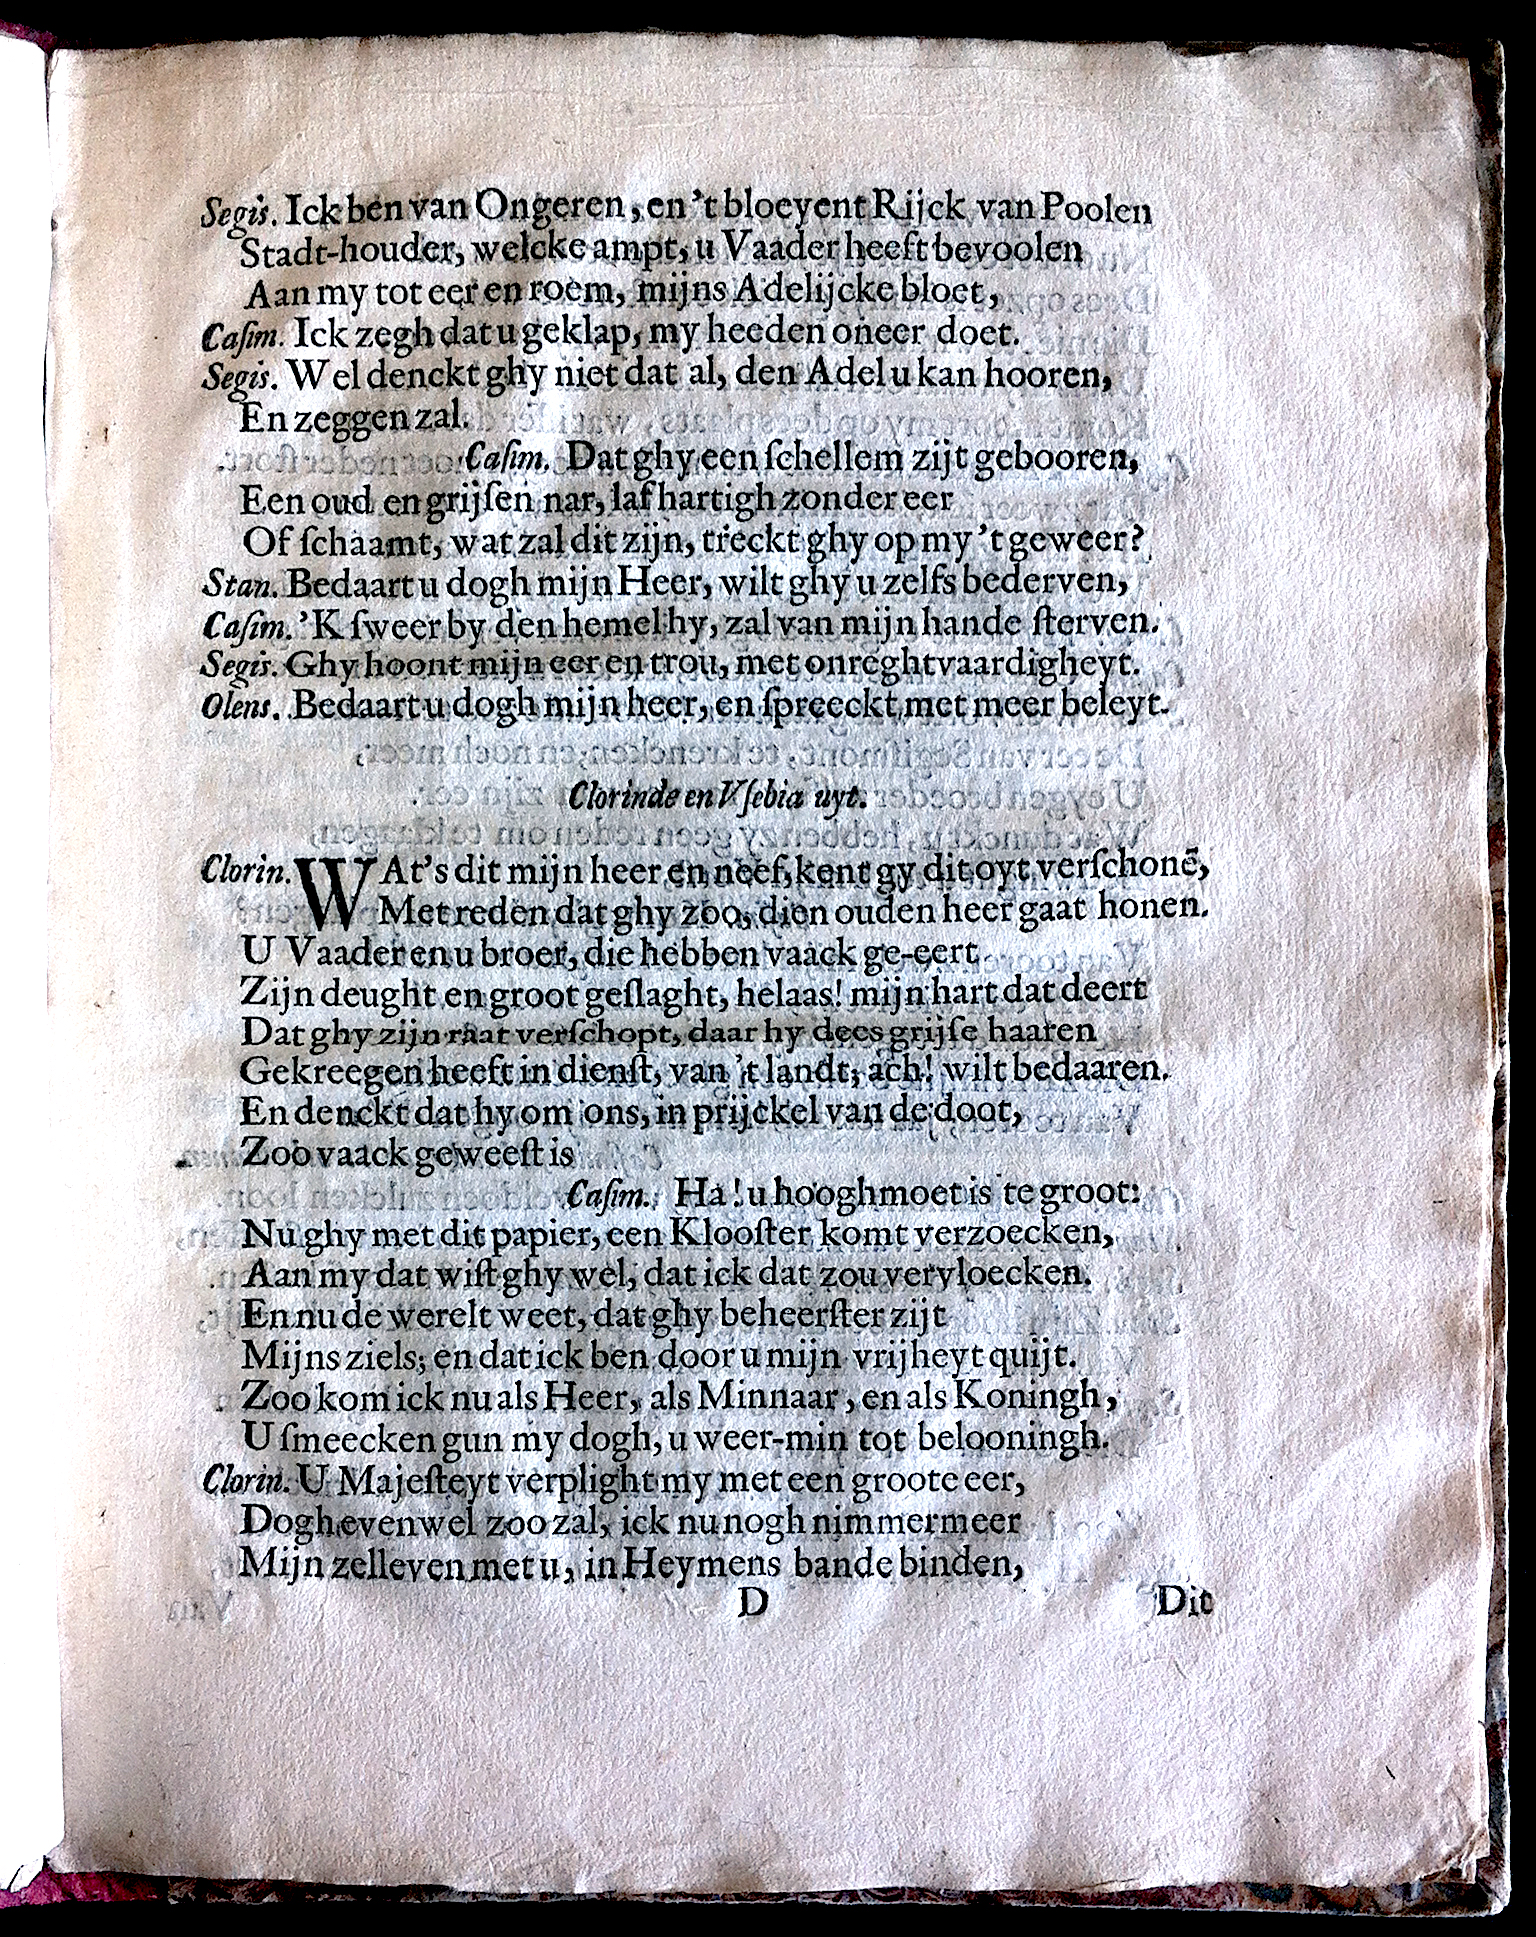 Segis. Ick ben van Ongeren, en 't bloeyent Rijck van Poolen
Stadt-houder, welcke ampt, u Vaader heeft bevoolen
Aan my tot eer en roem, mijns Adelijcke bloet,
Caſim. Ick zegh dat u geklap, my heeden oneer doet.
Segis. Wel denckt ghy niet dat al, den Adel u kan hooren,
En zeggen zal.
Caſim. Dat ghy een ſchellem zijt gebooren,
Een oud en grijſen nar, lafhartigh zonder eer
Of ſchaamt, wat zal dit zijn, treckt ghy op my 't geweer?
Stan. Bedaart u dogh mijn Heer, wilt ghy u zelfs bederven,
Caſim. 'K ſweer by den hemel hy, zal van mijn hande ſterven.
Segis. Ghy hoont mijn eer en trou, met onreghtvaardigheyt.
Olens. Bedaart u dogh mijn heer, en ſpreeckt met meer beleyt.
Clorinde en Vſebia uyt.
Clorin. WAt's dit mijn heer en neef, kent gy dit oyt verſchonē,
Met reden dat ghy zoo, dien ouden heer gaat honen.
U Vaader en u broer, die hebben vaack ge-eert
Zijn deught en groot geſlaght, helaas! mijn hart dat deert
Dat ghy zijn raat verſchopt, daar hy dees grijſe haaren
Gekreegen heeft in dienſt, van 't landt, ach! wilt bedaaren.
En denckt dat hy om ons, in prijckel van de doot,
Zoo vaack geweeſt is
Caſim. Ha! u hooghmoet is te groot:
Nu ghy met dit papier, een Klooſter komt verzoecken,
Aan my dat wiſt ghy wel, dat ick dat zou vervloecken.
En nu de werelt weet, dat ghy beheerſter zijt
Mijns ziels; en dat ick ben door u mijn vrijheyt quijt.
Zoo kom ick nu als Heer, als Minnaar, en als Koningh,
U ſmeecken gun my dogh, u weer-min tot belooningh.
Clorin. U Majeſteyt verplight my met een groote eer,
Dogh evenwel zoo zal, ick nu nogh nimmermeer
Mijn zelleven met u, in Heymens bande binden,
D Dit